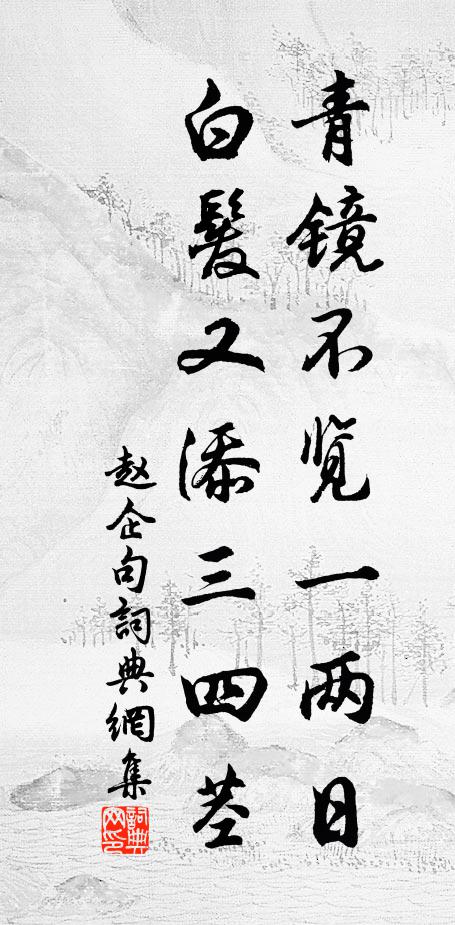 青镜不览一两日
白髮又添三四茎
赵企句詞典網集
詞典网印